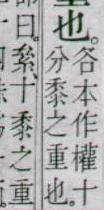 也。
各本作權十
分黍之重也。
曰。絫、十黍之重